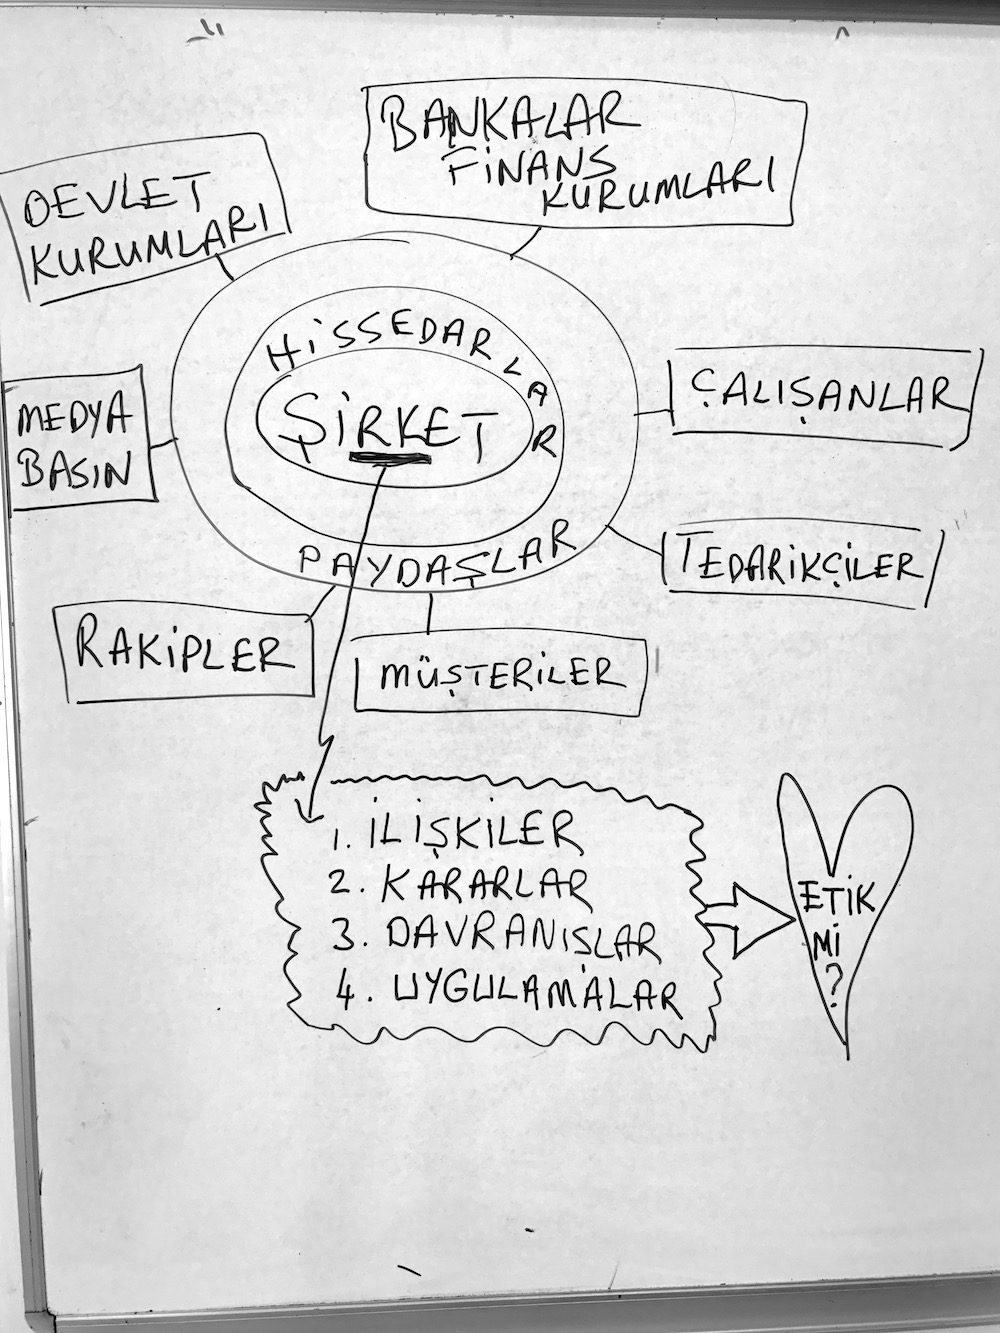 BANKALAR
FİNANS
KURUMLARI
DEVLET
KURUMLARI
HİSSEDARLAR
ŞİRKET
PAYDAŞLAR
MEDYA
BASIN
ÇALIŞANLAR
TEDARİKÇİLER
RAKİPLER
MÜŞTERİLER
1. İLİŞKİLER
2. KARARLAR
3. DAVRANIŞLAR
4. UYGULAMALAR
ETİK
Mİ
?